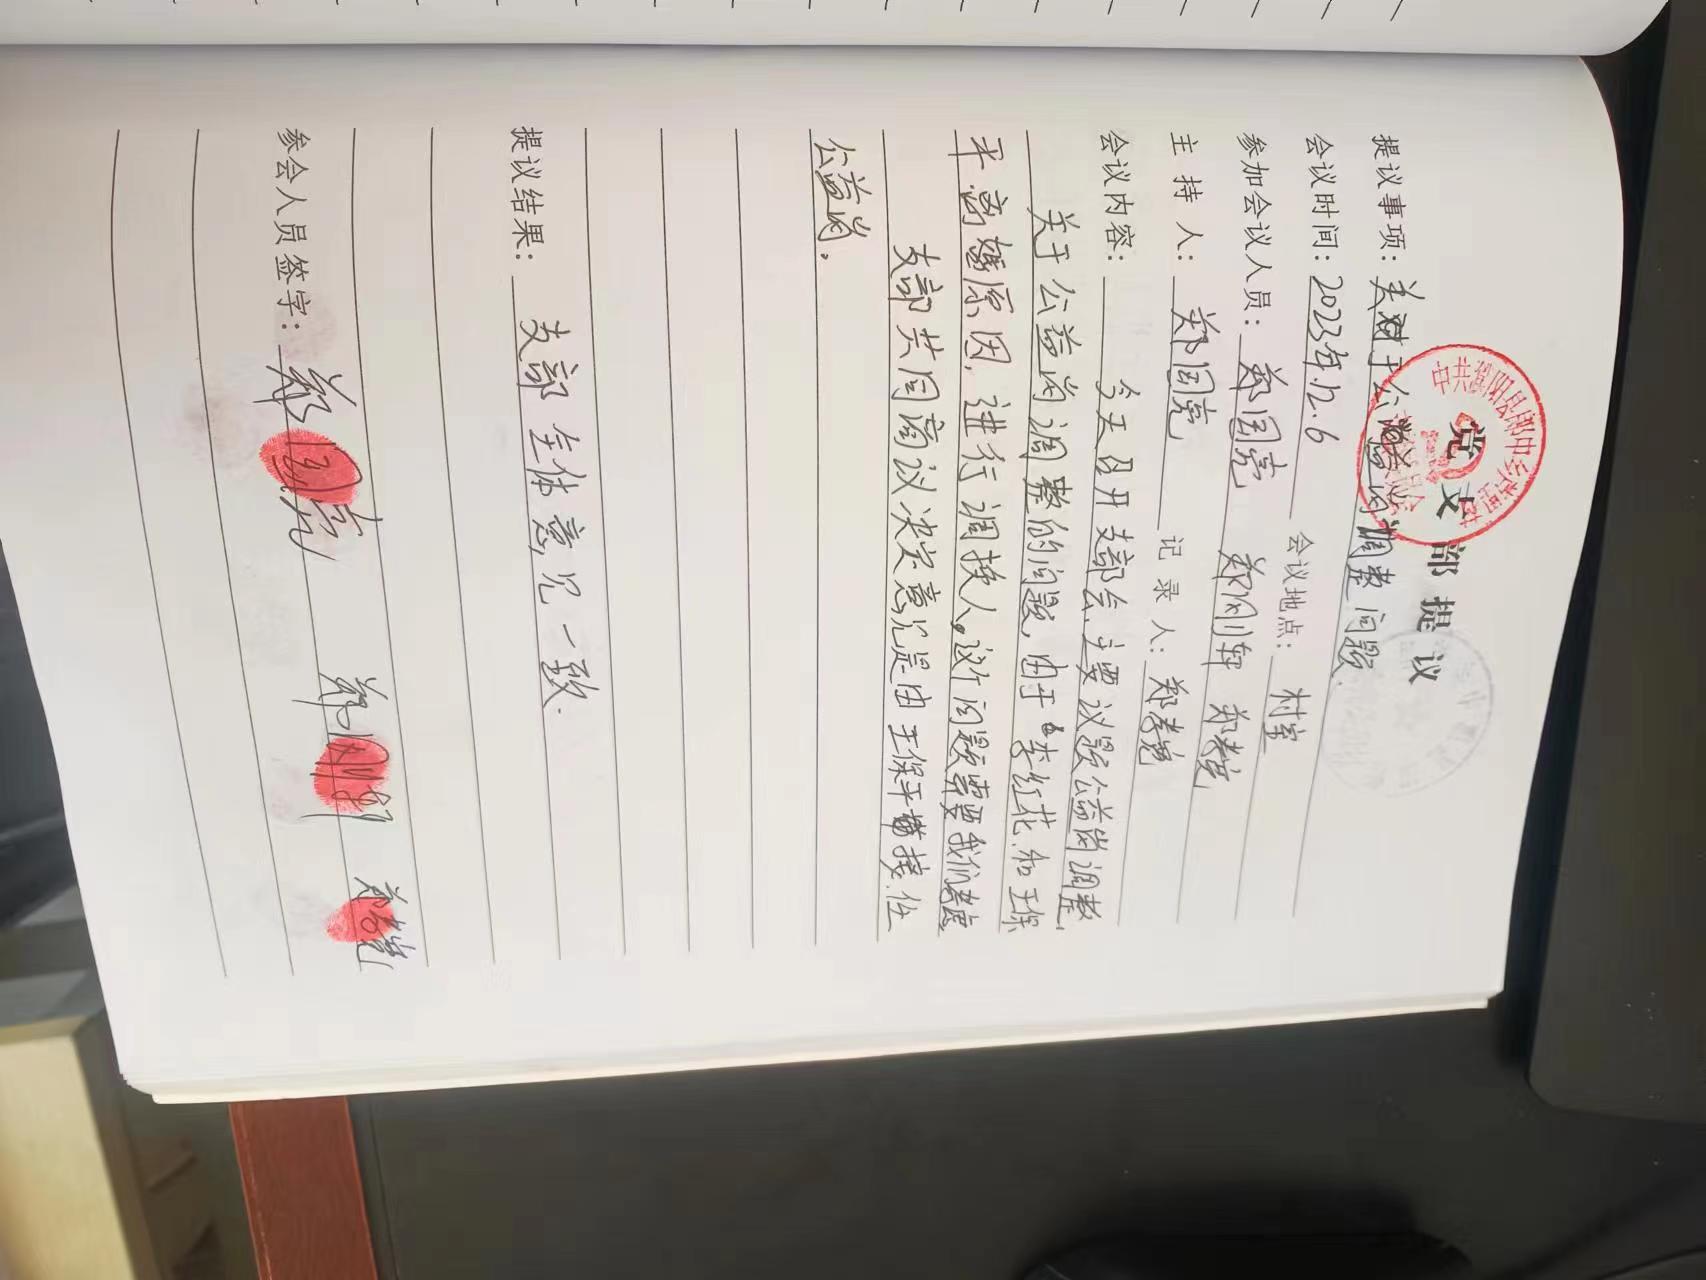 党支部提议
提议事项：关于公益岗调整问题.
会议时间：2023年.12.6 会议地点：村室
参加会议人员：郑国亮 郑刚轩 郑孝宽
主持人：郑国亮 记录人：郑孝宽
会议内容：今天召开支部会.主要议题公益岗调整,
关于公益岗调整的问题,由于李红花.和王保
平离婚原因,进行调换人。这个问题需要我们考虑
支部共同商议决定意见是由王保平接任
公益岗。
提议结果：支部全体意见一致.
参会人员签字：郑国亮 郑刚轩 郑孝宽